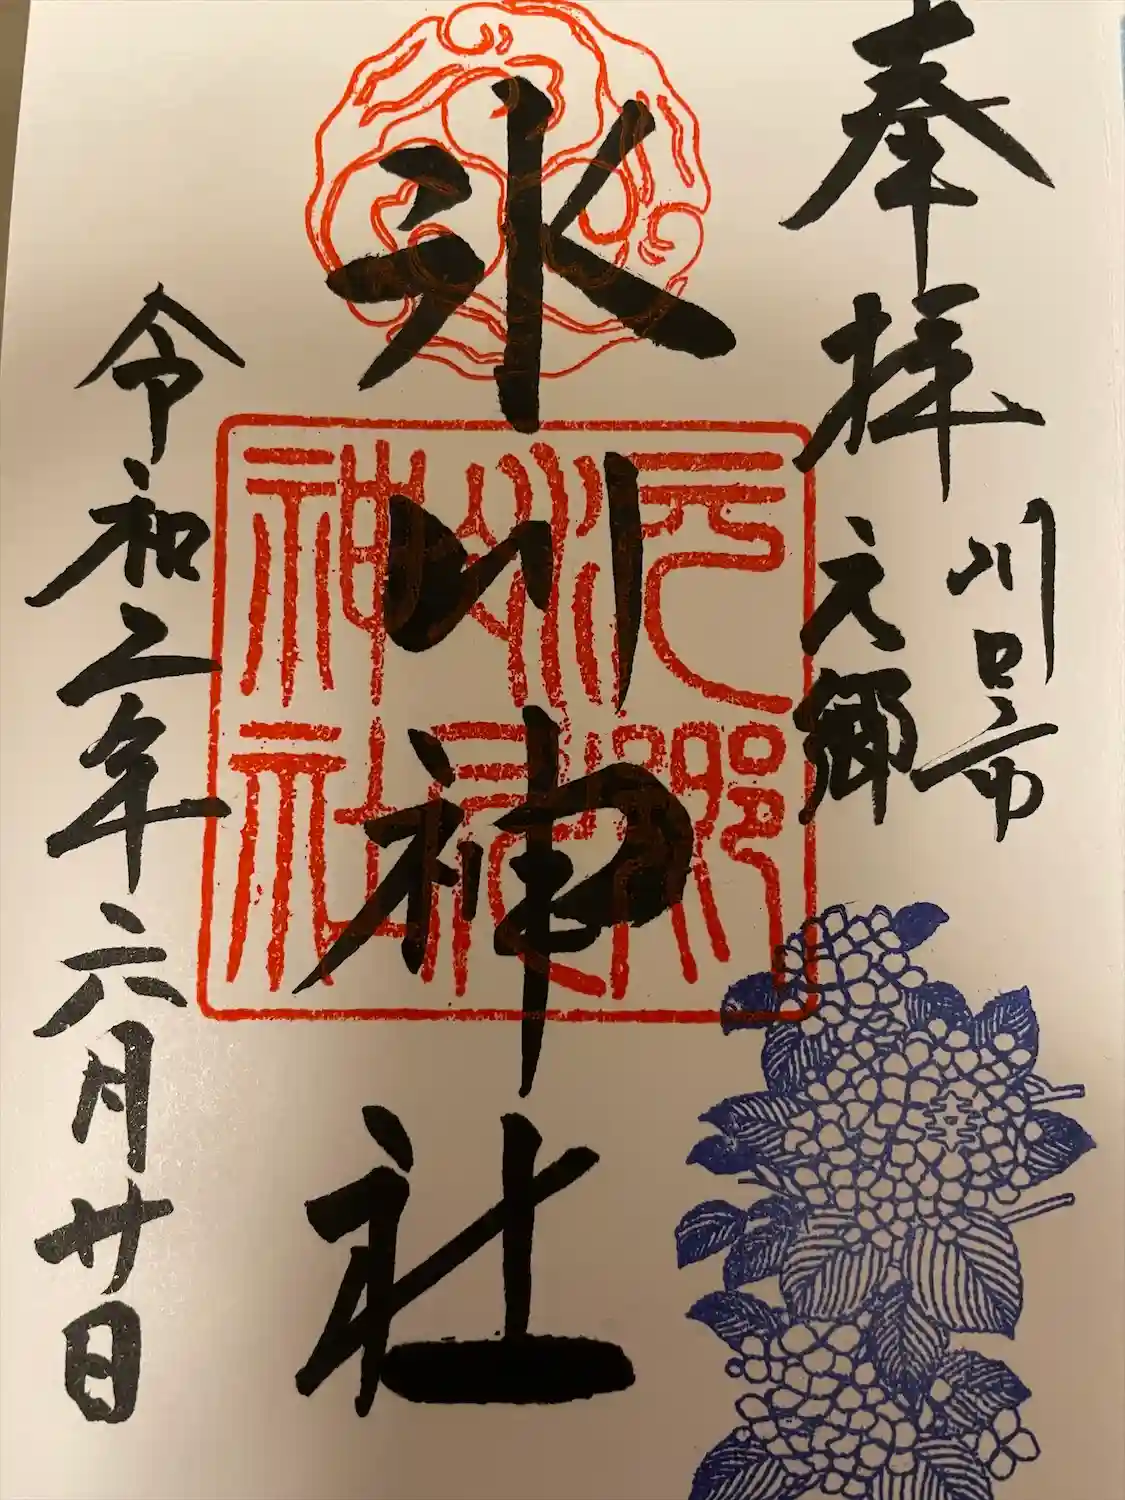 奉拝
川口市
元郷
氷川神社
元郷氷川神社
令和二年六月廿日